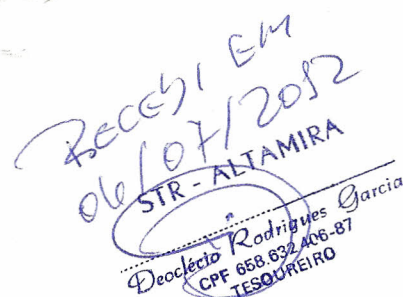 RECEBI EM
06/07/2012
STR - ALTAMIRA
Deoclécio Rodrigues Garcia
CPF 658.632.406-87
TESOUREIRO